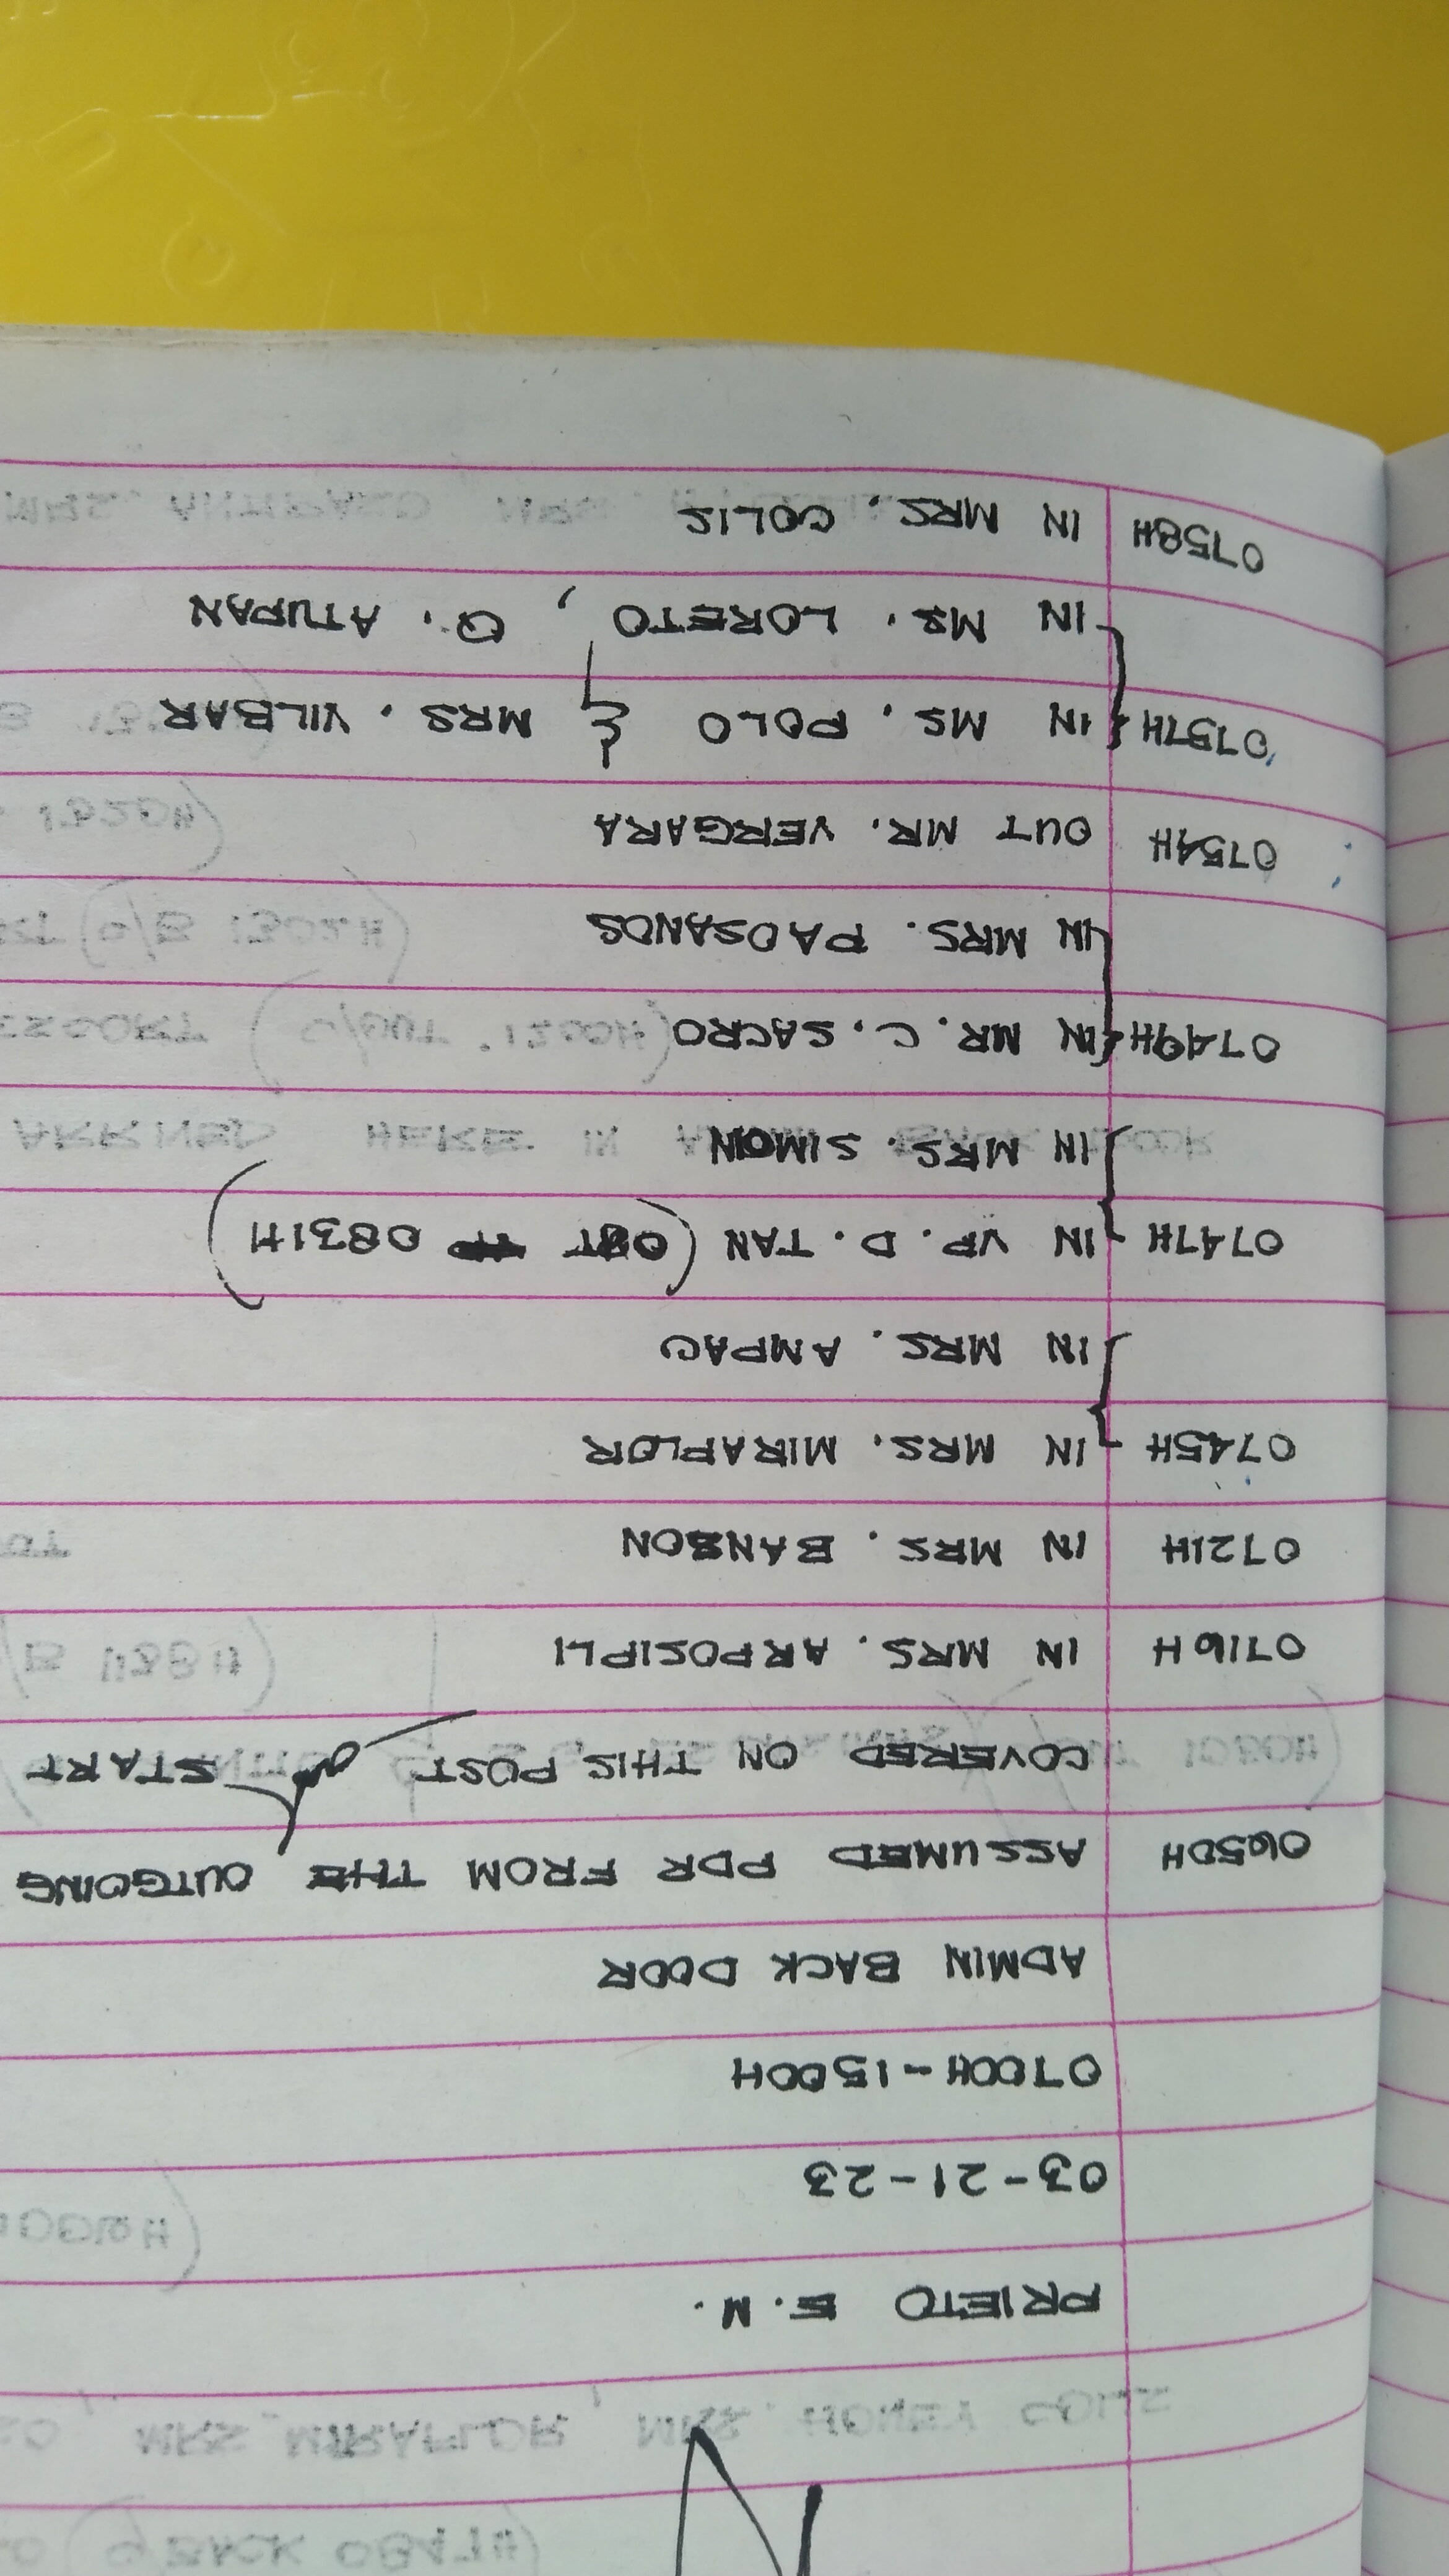 PRIETO E.M.
03-21-23
0700H-1500H
ADMIN BACK DOOR
0650H ASSUMED PDR FROM THE OUTGOING
COVERED ON THIS POST START
0716H IN MRS. ARPOSIPLI
0721H IN MRS. BANSON
0745H IN MRS. MIRAFLOR
IN MRS. AMPAC
0747H IN VP. D. TAN (OUT 0831H)
IN MRS. SIMON
0749H IN MR. C. SACRO
IN MRS. PAOSANOS
0754H OUT MR. VERGARA
0757H IN MS. POLO & MRS. VILBAR
IN MS. LORETO, Q. ATUPAN
0758H IN MRS. COLIS